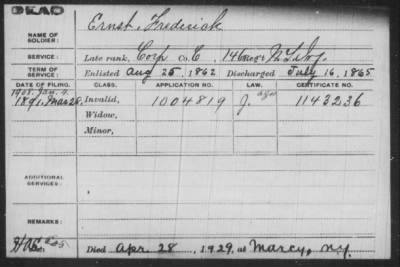 DEAD
NAME OF SOLDIER: Ernst, Frederick
SERVICE: Late rank, Corp Co. C, 146 Reg't N.Y. Inf.
TERM OF SERVICE: Enlisted Aug 25, 1862 Discharged July 16, 1865
DATE OF FILING. CLASS. APPLICATION NO. LAW. CERTIFICATE NO.
1908. Jan. 4.
1891, Mar 28. Invalid, 1004819 J. 1143236
Widow,
Minor,
ADDITIONAL SERVICES:
REMARKS:
Died Apr. 28, 1929, at Marcy, N.Y.